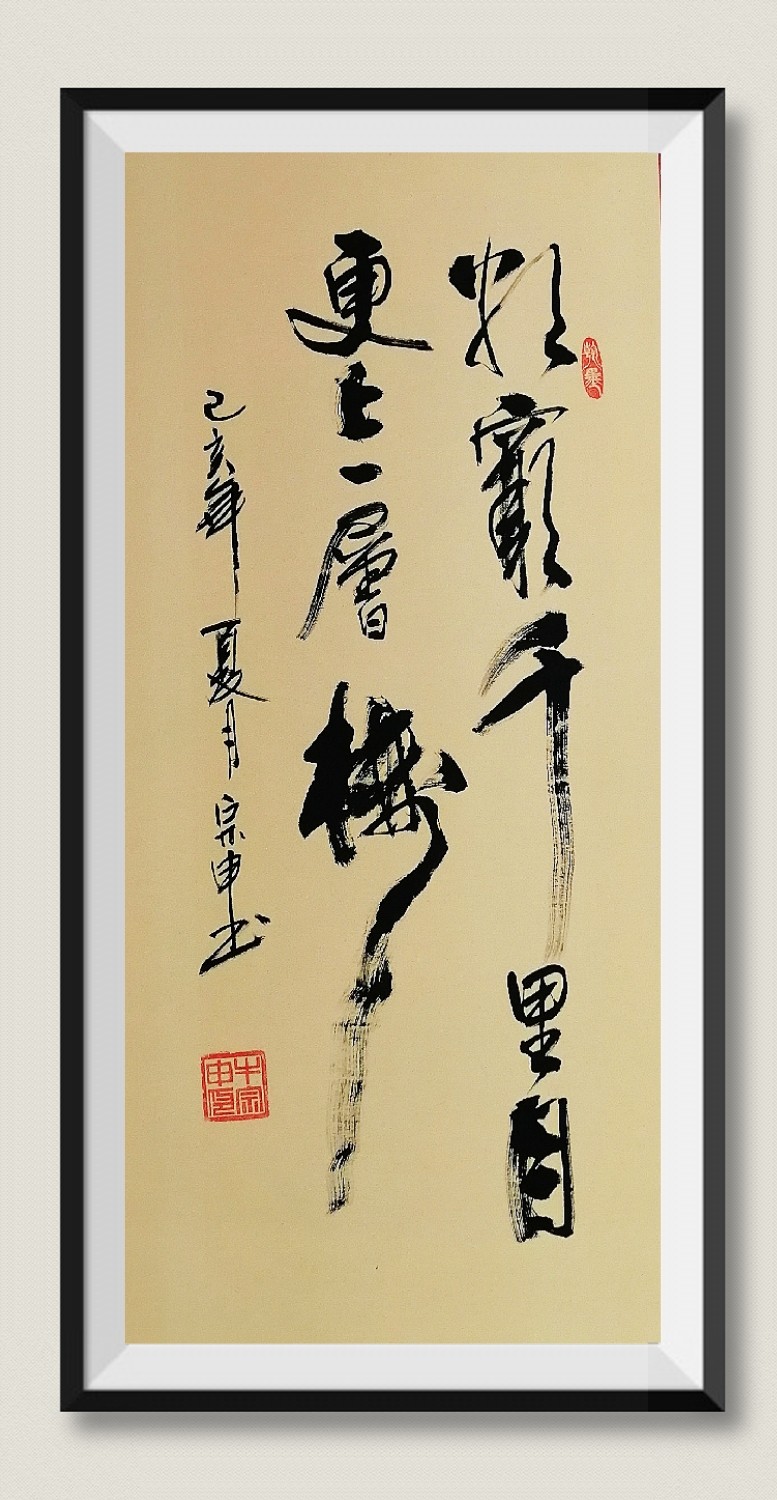 欲窮千里目
更上一層樓
己亥年夏月宗申书
牛宗申印